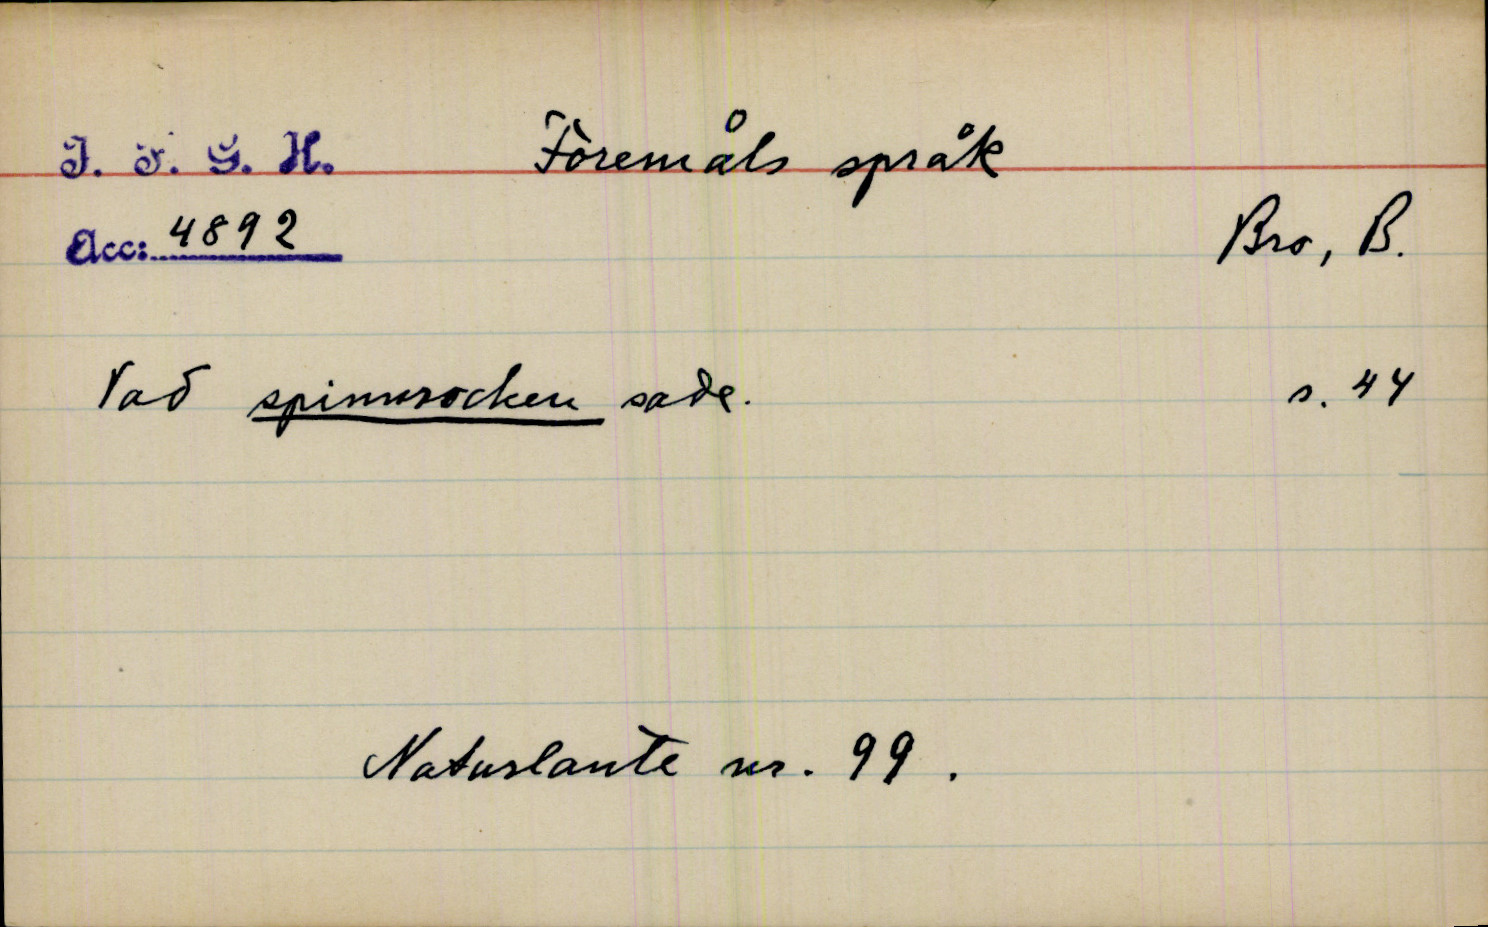 I. F. G. H. Föremåls språk
Acc: 4892
Bro, B.
Vad spinnrocken sade. s. 44
Naturlaute nr. 99.